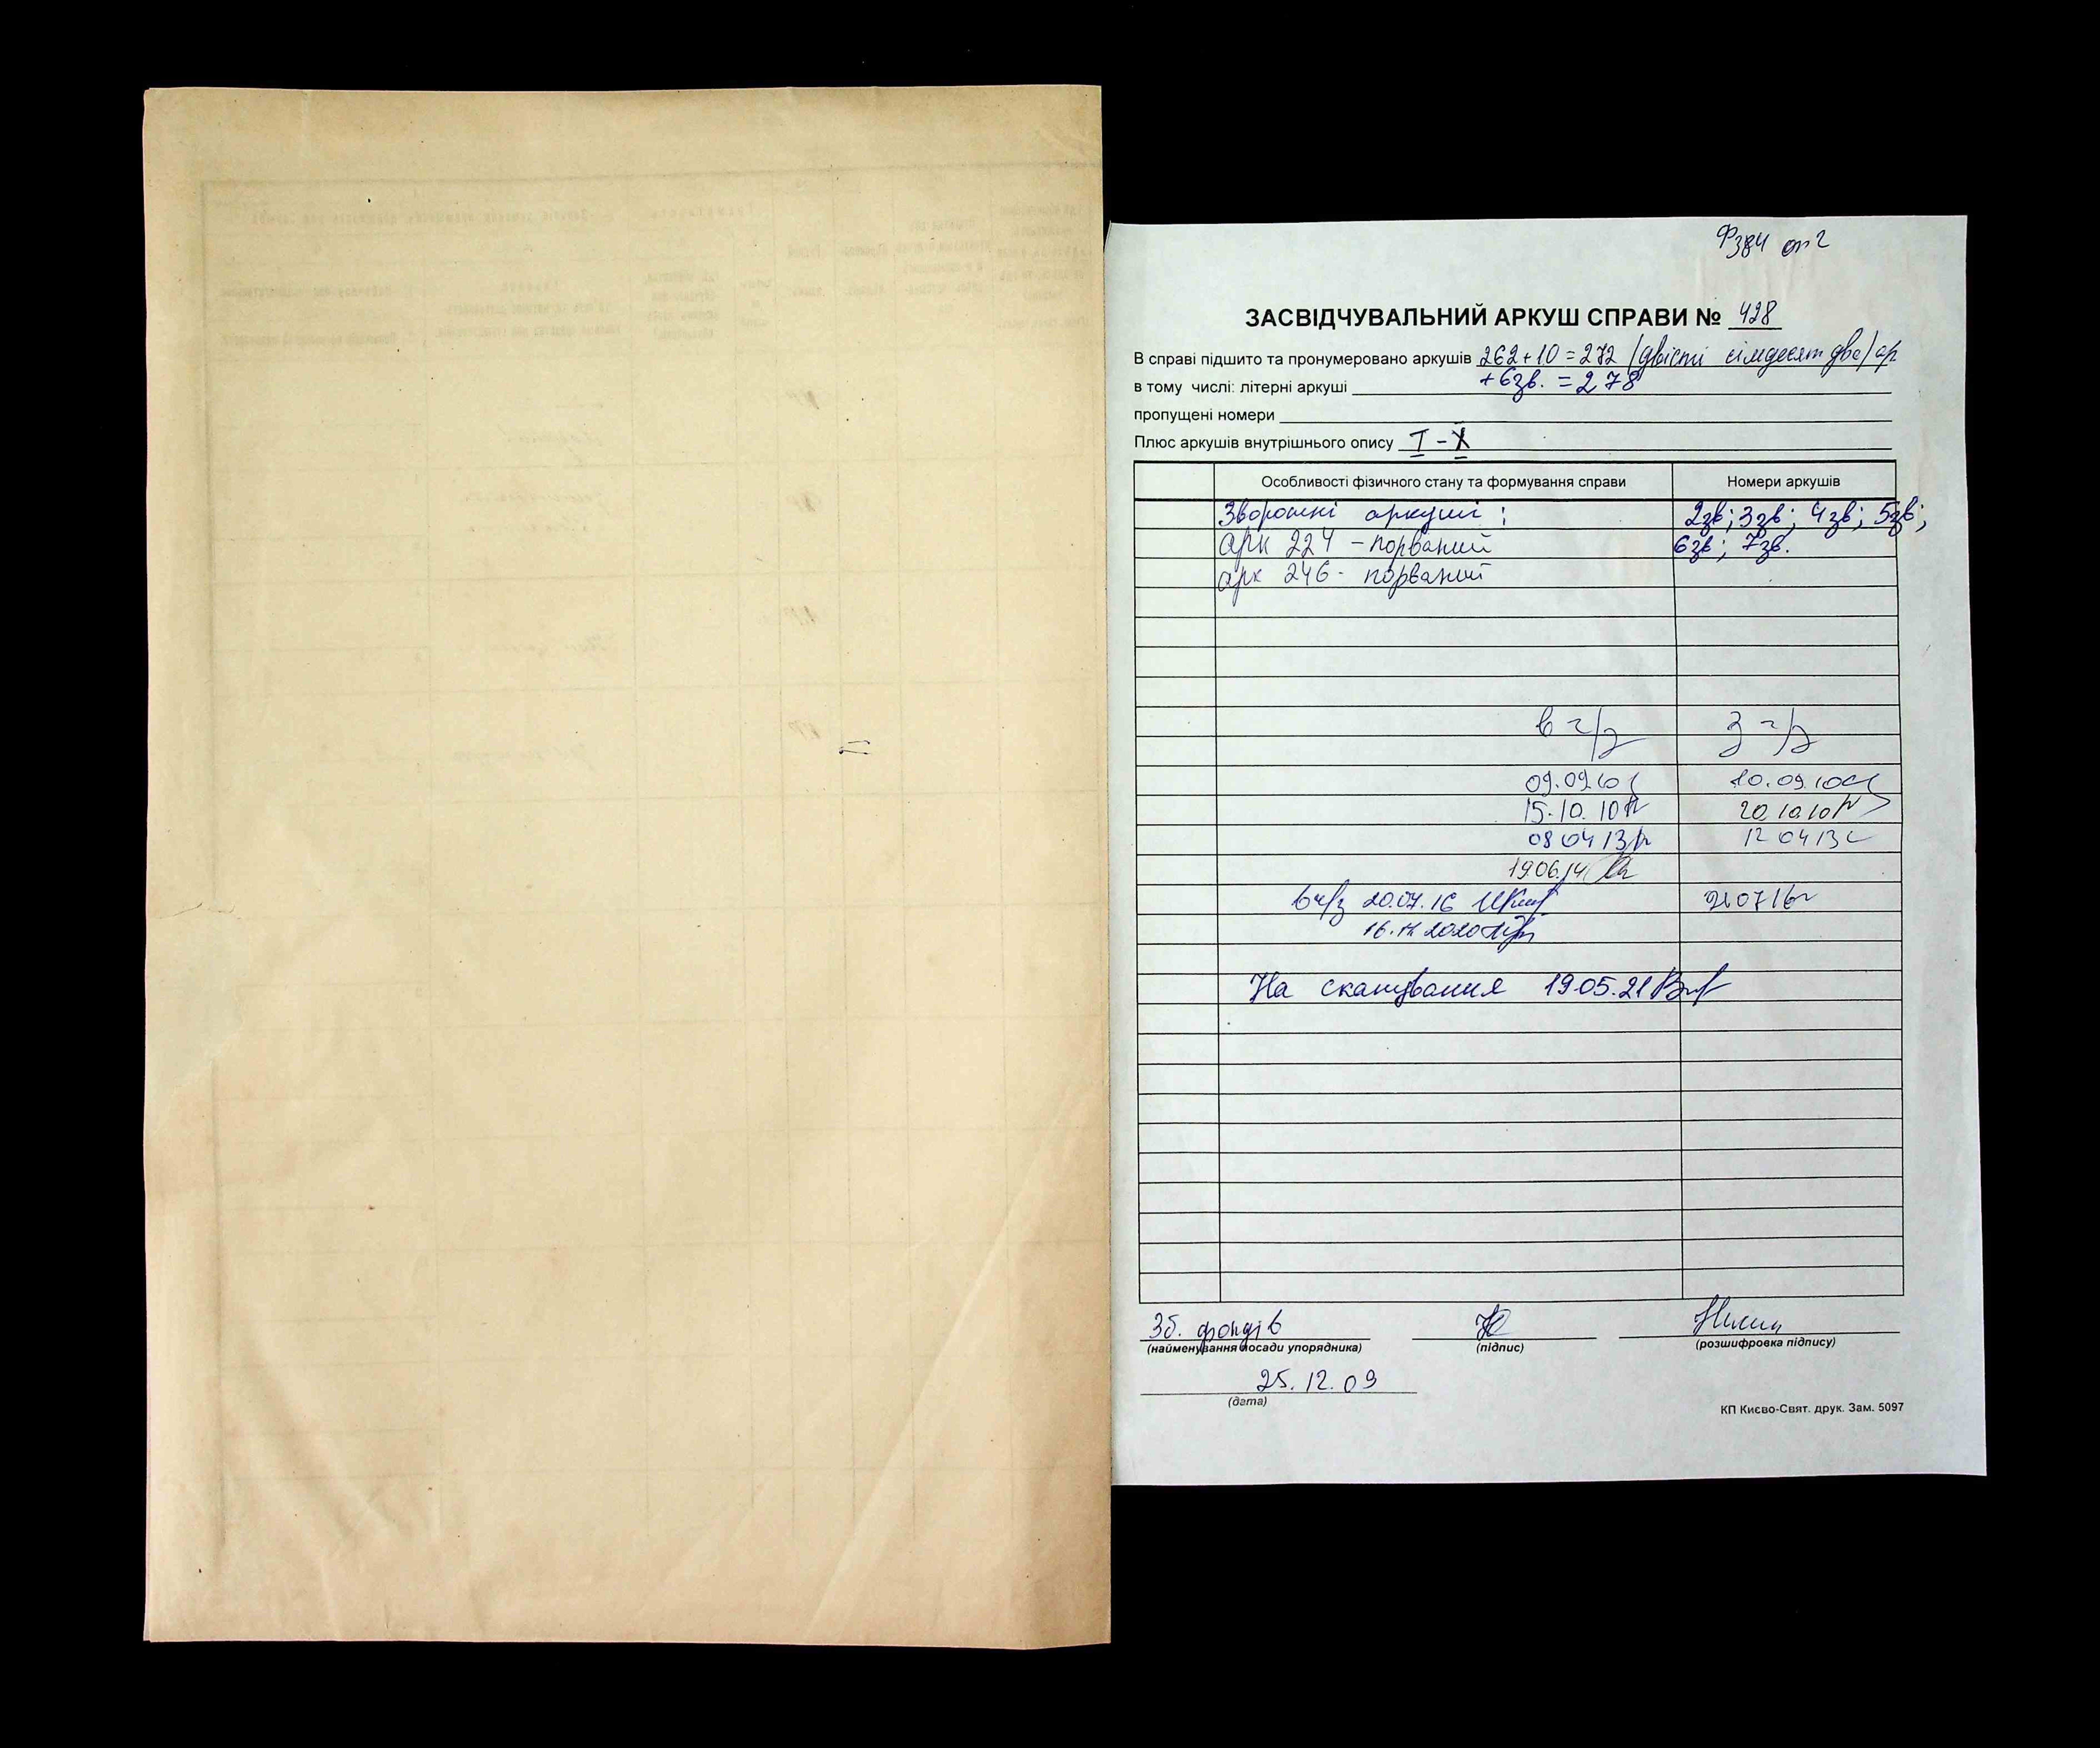 Ф384 оп2
ЗАСВІДЧУВАЛЬНИЙ АРКУШ СПРАВИ № 428
В справі підшито та пронумеровано аркушів 262+10=272 /двісті сімдесят два/ ар
в тому числі: літерні аркуші +6зв. =278
пропущені номери
Плюс аркушів внутрішнього опису I-X
Особливості фізичного стану та формування справи Номери аркушів
Зворотні аркуші: 2зв; 3зв; 4зв; 5зв;
арк 224 - порваний 6зв; 7зв.
арк 246 - порваний
в ч/з З ч/з
09.09.10 10.09.10
15.10.10 20.10.10
08 04 13 12 04 13
19.06.14
в ч/з 20.07.16 21 07 16
2020
На сканування 19.05.21
Зб. фондів
(найменування посади упорядника) (підпис) (розшифровка підпису)
25.12.09
(дата)
КП Києво-Свят. друк. Зам. 5097